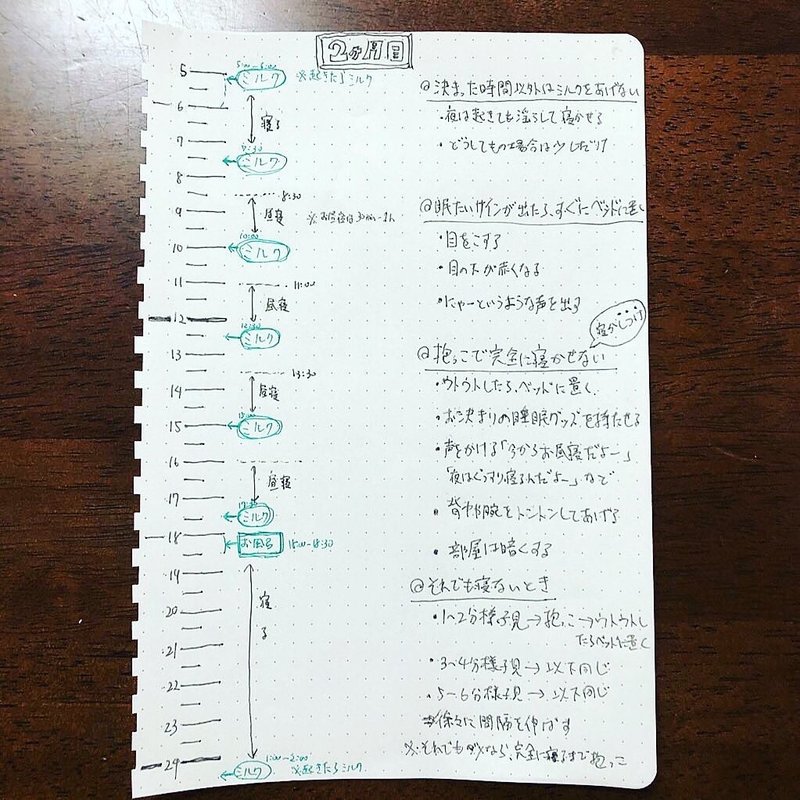 2ヶ月目
5
5:00-6:00
ミルク
※起きたらミルク
6
寝る
7
7:30
ミルク
8
8:30
9
昼寝
※お昼寝は30min-2h
10:00
10
ミルク
11
11:00
昼寝
12
12:30
ミルク
13
13:30
14
昼寝
15:00
15
ミルク
16
昼寝
17
ミルク
18
お風呂
18:00-18:30
19
20
寝る
21
22
23
1:00-2:00
24
ミルク
※起きたらミルク
@決まった時間以外はミルクをあげない
・夜は起きても
して寝かせる
・どうしてもの場合は少しだけ
@眠たいサインが出たら、すぐにベッドに置く
・目をこする
・目の下が赤くなる
・にゃーというような声を出す
寝かしつけ
@抱っこで完全に寝かせない
・ウトウトしたら、ベッドに置く、
・お決まりの睡眠グッズを持たせる
・声をかける「今からお昼寝だよー」
「夜はぐっすり寝るんだよー」など
・背中や腕をトントンしてあげる
・部屋は暗くする
@それでも寝ないとき
・1~2分様子見→抱っこ→ウトウトし
たらベットに置く
・3~4分様子見→以下同じ
・5~6分様子見→以下同じ
徐々に間隔を伸ばす
※それでもダメなら、完全に寝るまで抱っこ